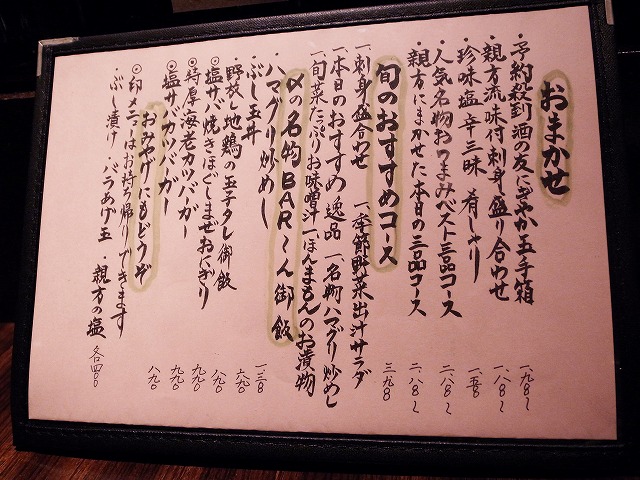 おまかせ
・予約殺到酒の友にぎやか玉手箱 一、九八〜
・親方流味付刺身盛り合わせ 一、八八〜
・珍味塩辛三昧 肴しゃり 一、一五〇
・人気名物おつまみベスト三品コース 二、八八〜
・親方にまかせた本日の三品コース 二、八八〜
旬のおすすめコース 三、九八〜
一、刺身盛合わせ 一、季節野菜出汁サラダ
一、本日のおすすめ逸品 一、名物ハマグリ炒めし
一、旬菜たっぷりお味噌汁 一、ほんまもんのお漬物
〆の名物BAR〜ん御飯
・ハマグリ炒めし 一、二三〇
・ぶし玉丼 六九〇
・野放し地鶏の玉子タレ御飯 六九〇
・塩サバ焼きほぐしまぜおにぎり 八九〇
・特厚海老カツバーガー 九九〇
・塩サバカツバーガー 九九〇
おみやげにもどうぞ 八九〇
◎印メニューはお持ち帰りできます
・ぶし漬け ・バラあげ玉 ・親方の塩 各四〇〇